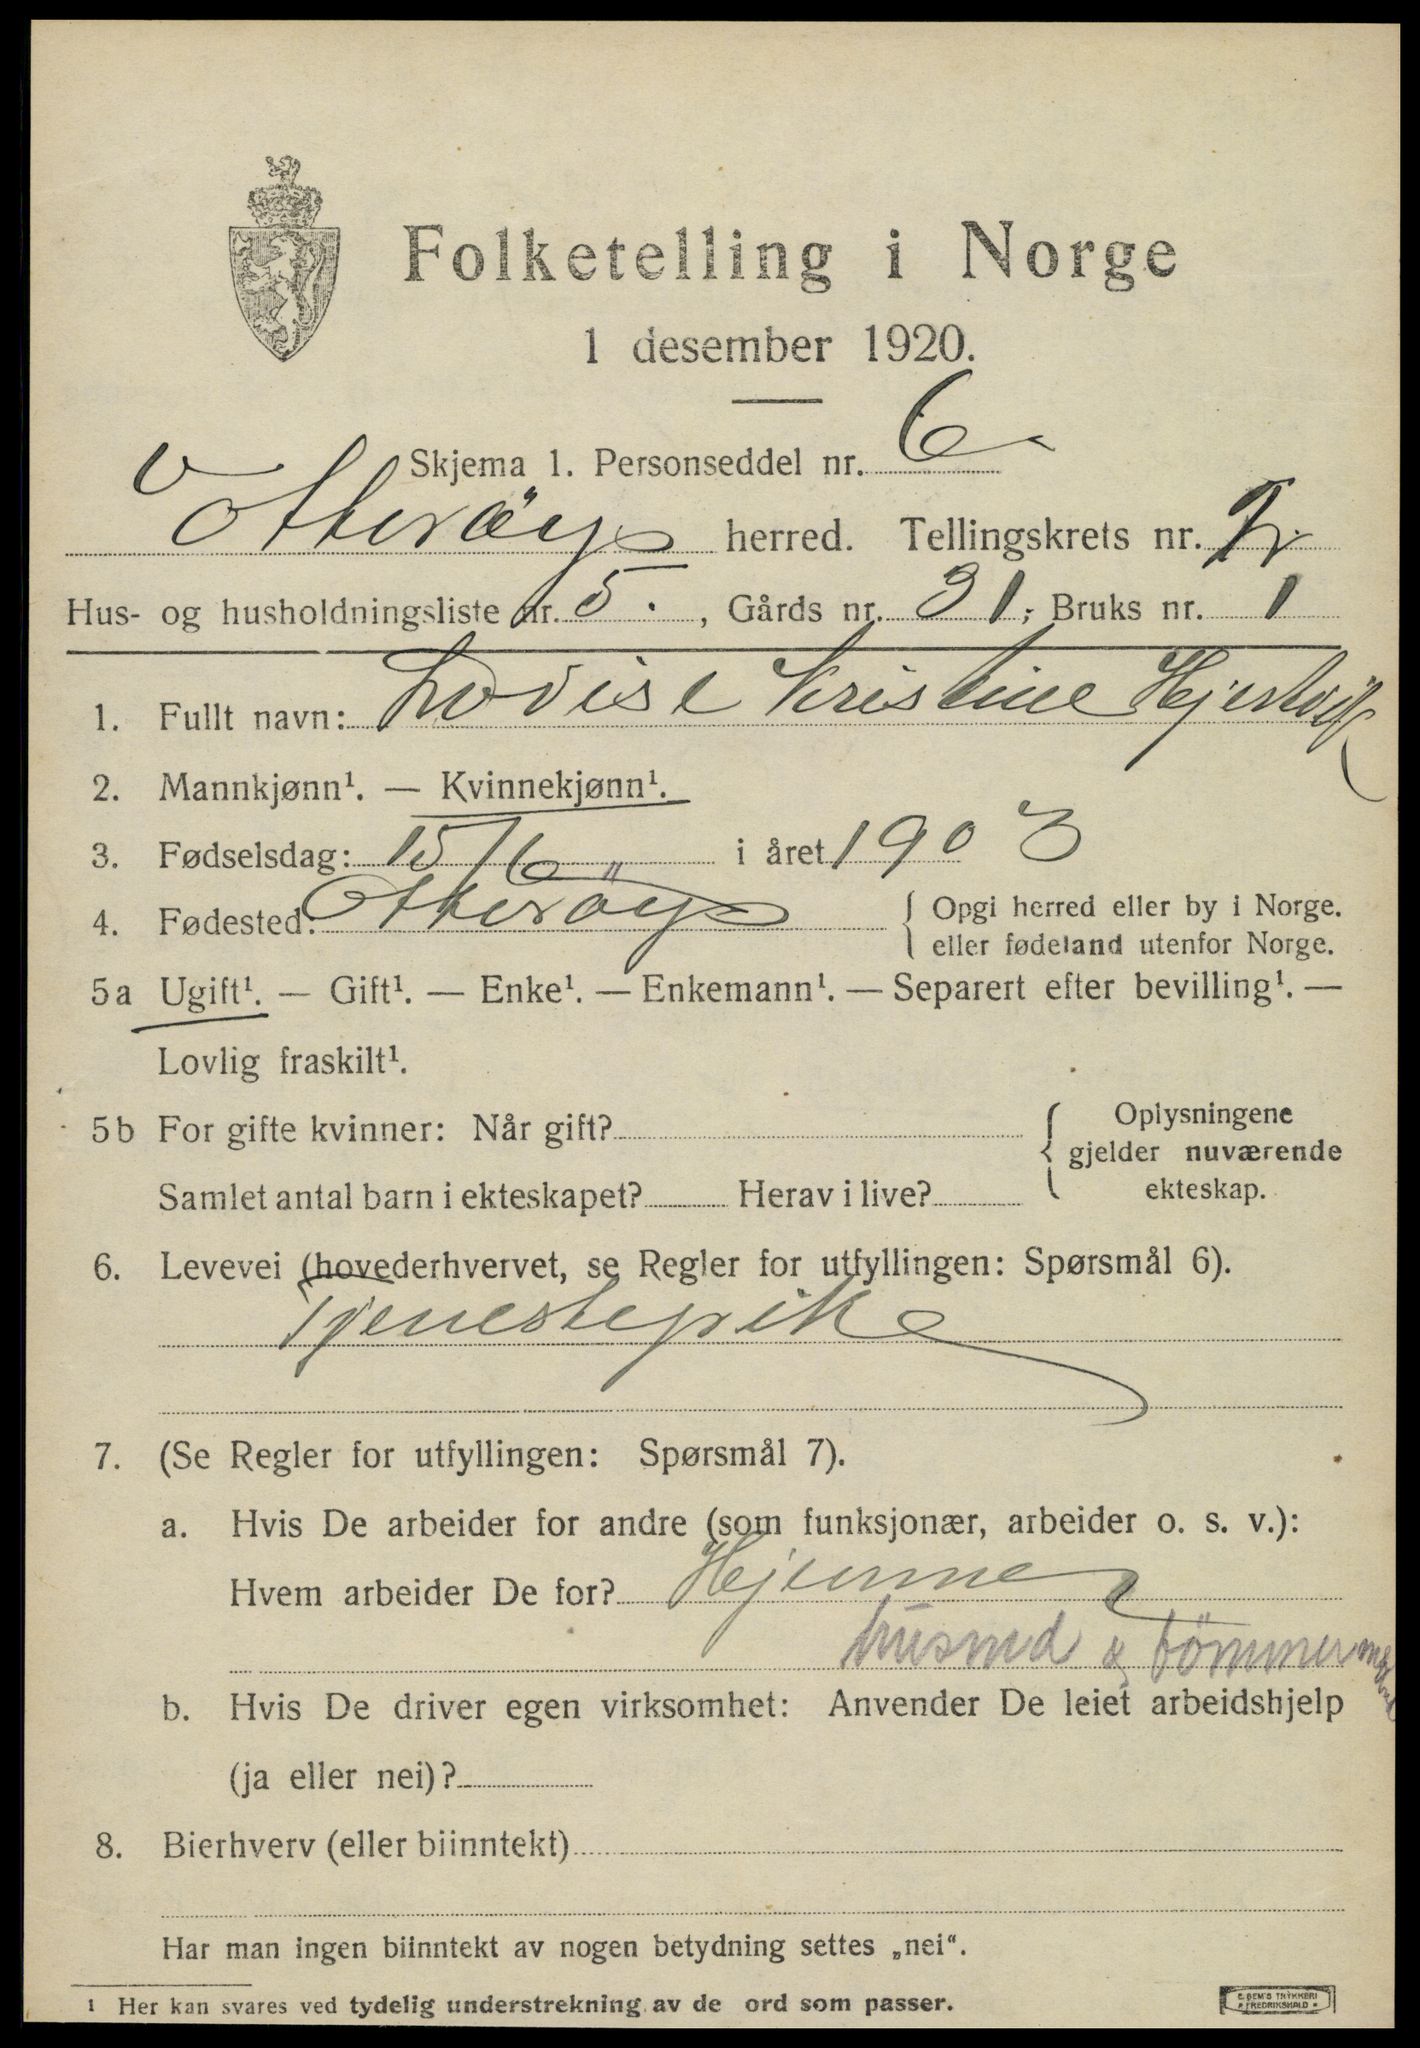 Folketelling i Norge
1 desember 1920.
Skjema 1. Personseddel nr. 6
Otterøy herred. Tellingskrets nr. 2
Hus- og husholdningsliste nr. 5. , Gårds nr. 31, Bruks nr. 1
1. Fullt navn: Lovise Kristine
2. Mannkjønn¹. — Kvinnekjønn¹.
3. Fødselsdag: 15/6 i året 1903
4. Fødested: Otterøy { Opgi herred eller by i Norge.
eller fødeland utenfor Norge.
5a Ugift¹. — Gift¹. — Enke¹. — Enkemann¹. — Separert efter bevilling¹. —
Lovlig fraskilt¹.
5b For gifte kvinner: Når gift?
Samlet antal barn i ekteskapet? Herav i live?
{ Oplysningene
gjelder nuværende
ekteskap.
6. Levevei (hovederhvervet, se Regler for utfyllingen: Spørsmål 6).
Tjenestepike
7. (Se Regler for utfyllingen: Spørsmål 7).
a. Hvis De arbeider for andre (som funksjonær, arbeider o. s. v.):
Hvem arbeider De for? Hjemme
husmd & tömmerm
b. Hvis De driver egen virksomhet: Anvender De leiet arbeidshjelp
(ja eller nei)?
8. Bierhverv (eller biinntekt)
Har man ingen biinntekt av nogen betydning settes „nei“.
¹ Her kan svares ved tydelig understrekning av de ord som passer.
E. SEM'S TRYKKERI
FREDRIKSHALD